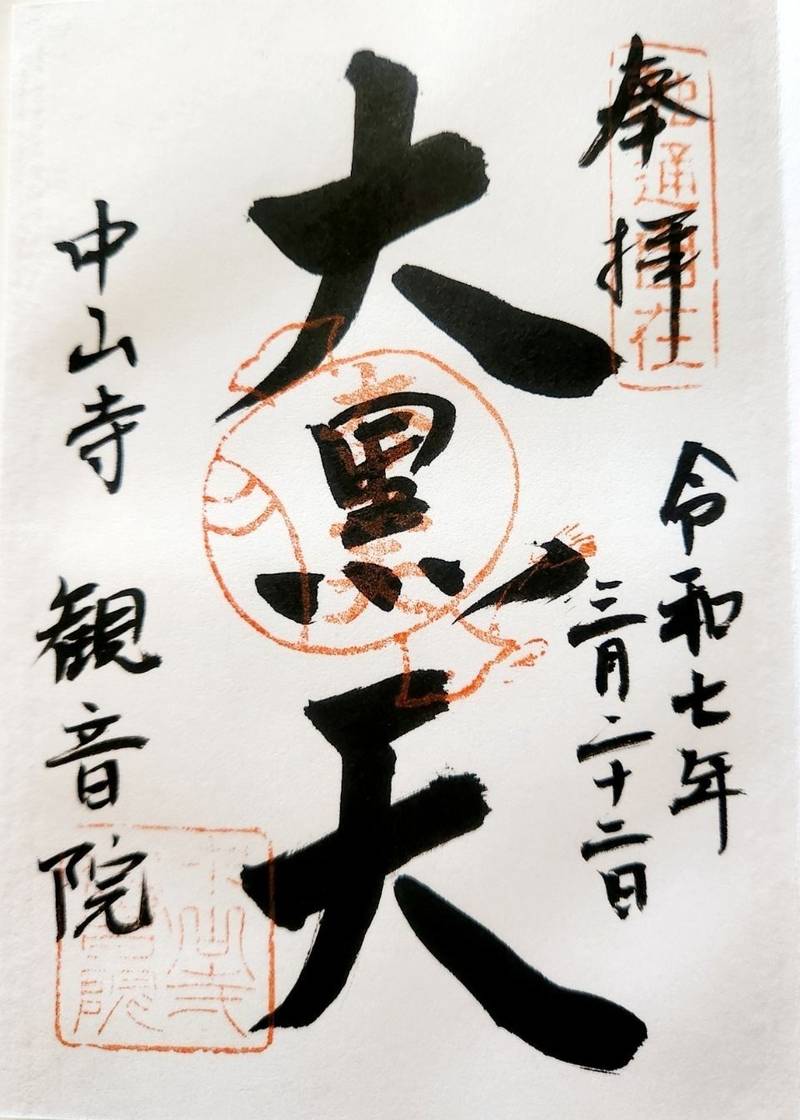 奉拝
令和七年
三月二十二日
大黒天
中山寺 観音院